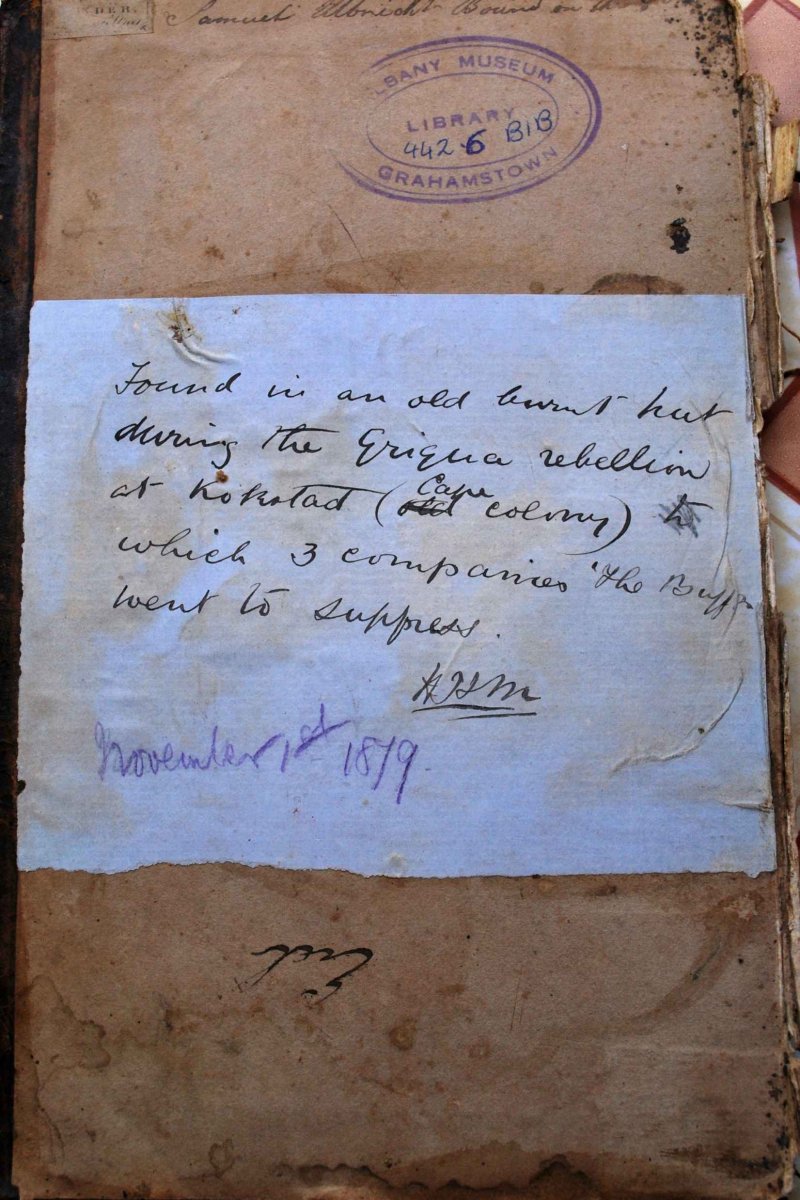 Samuel Albrecht Bound on the
ALBANY MUSEUM
LIBRARY
442 6 BIB
GRAHAMSTOWN
Found in an old burnt hut
during the Griqua rebellion
at Kokstad (Cape colony)
which 3 companies 'The Buffs
went to suppress.
November 1st 1879.